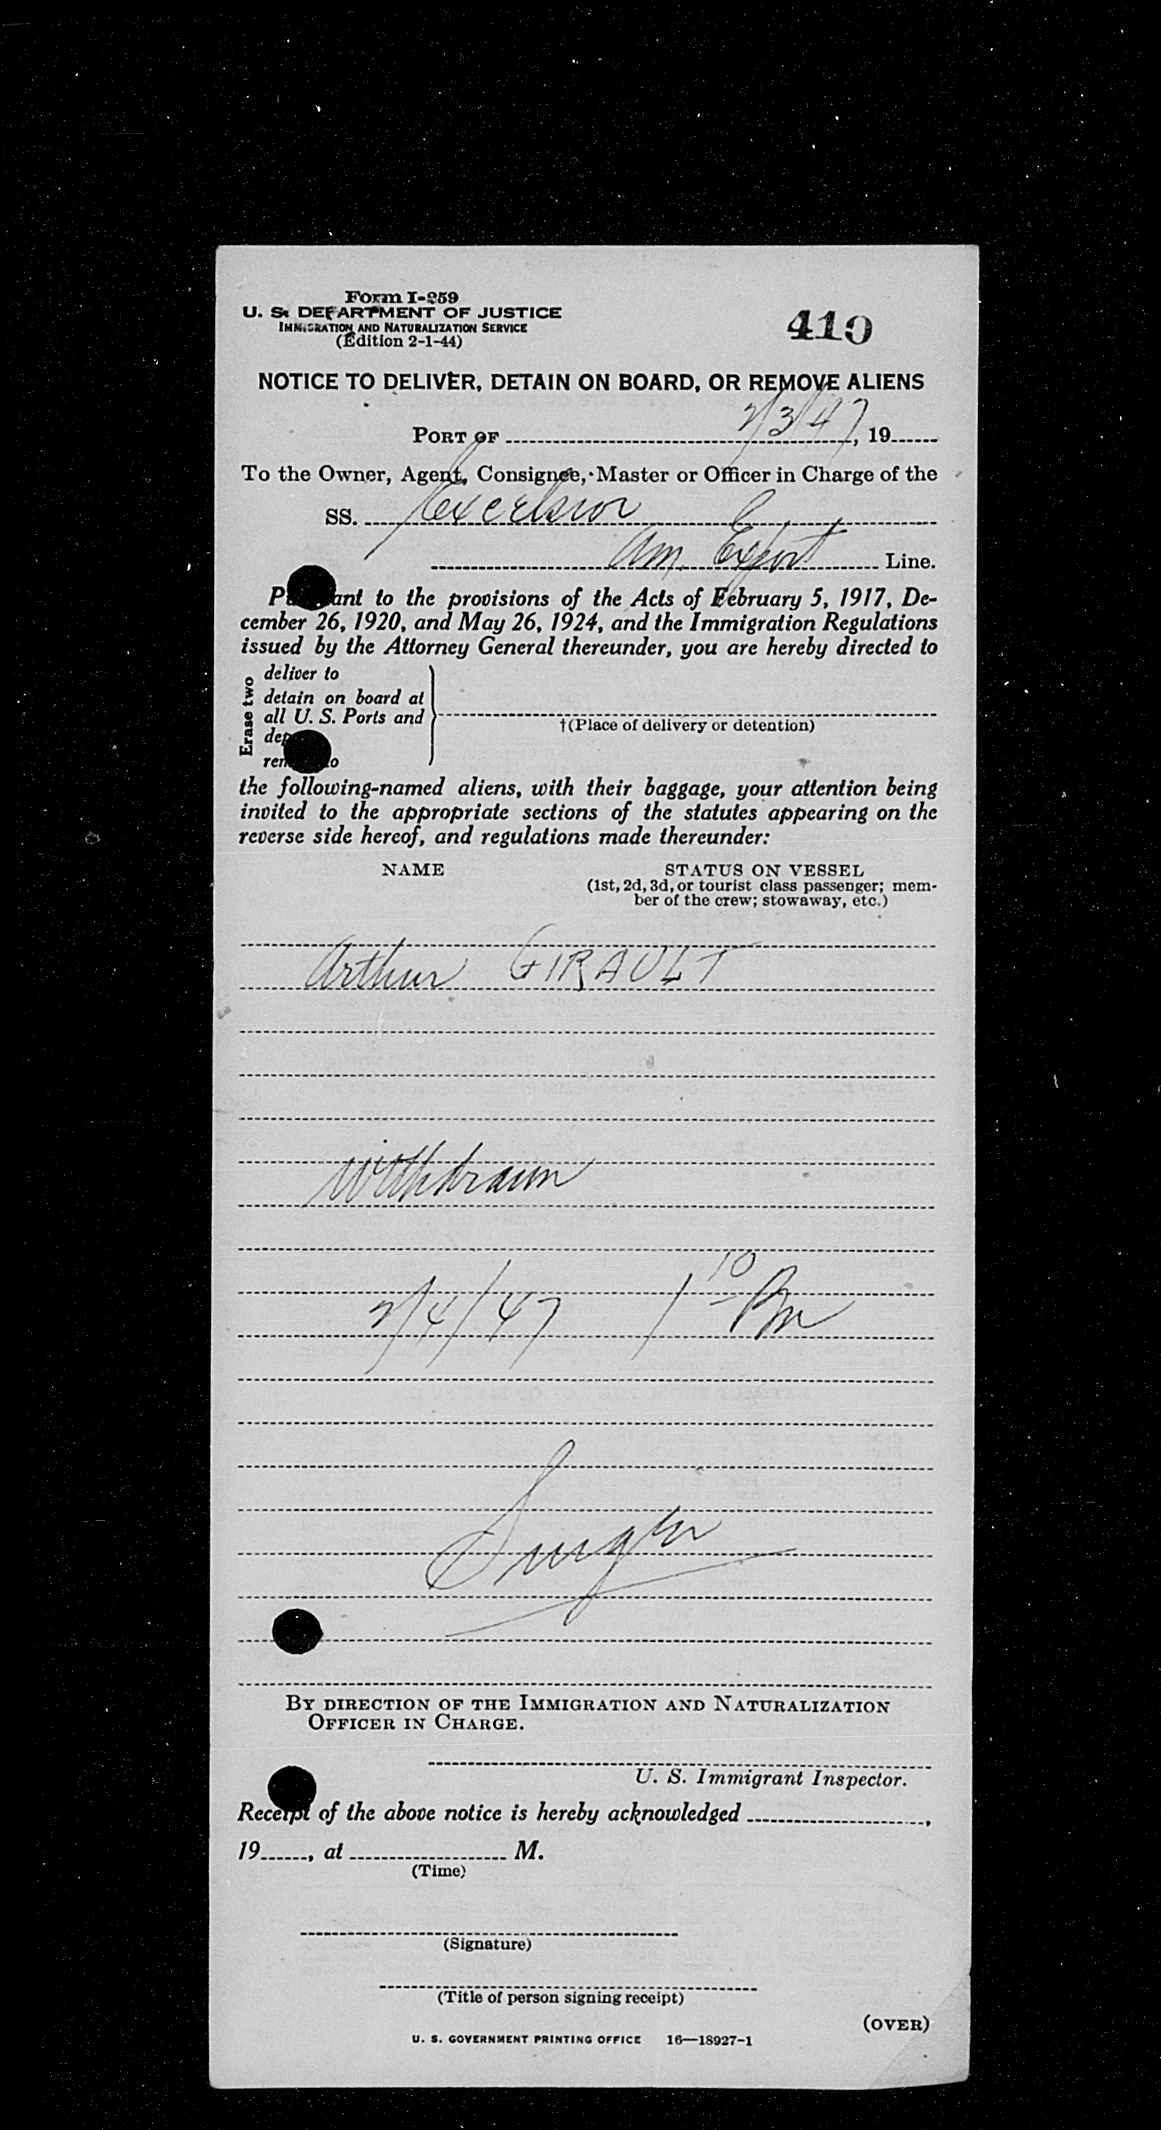 Form I-259
U. S. DEPARTMENT OF JUSTICE
IMMIGRATION AND NATURALIZATION SERVICE
(Edition 2-1-44)
410
NOTICE TO DELIVER, DETAIN ON BOARD, OR REMOVE ALIENS
2/3/47
PORT OF , 19
To the Owner, Agent, Consignee, Master or Officer in Charge of the
SS. Excelsior
Am. Export Line.
Pursuant to the provisions of the Acts of February 5, 1917, De-
cember 26, 1920, and May 26, 1924, and the Immigration Regulations
issued by the Attorney General thereunder, you are hereby directed to
Erase two
deliver to
detain on board at
all U. S. Ports and
†(Place of delivery or detention)
the following-named aliens, with their baggage, your attention being
invited to the appropriate sections of the statutes appearing on the
reverse side hereof, and regulations made thereunder:
NAME STATUS ON VESSEL
(1st, 2d, 3d, or tourist class passenger; mem-
ber of the crew; stowaway, etc.)
Arthur GIRAULT
Withdrawn
2/4/47 1 10 Pm
By direction of the Immigration and Naturalization
Officer in Charge.
U. S. Immigrant Inspector.
Receipt of the above notice is hereby acknowledged ,
19 , at M.
(Time)
(Signature)
(Title of person signing receipt)
(OVER)
U. S. GOVERNMENT PRINTING OFFICE 16—18927-1